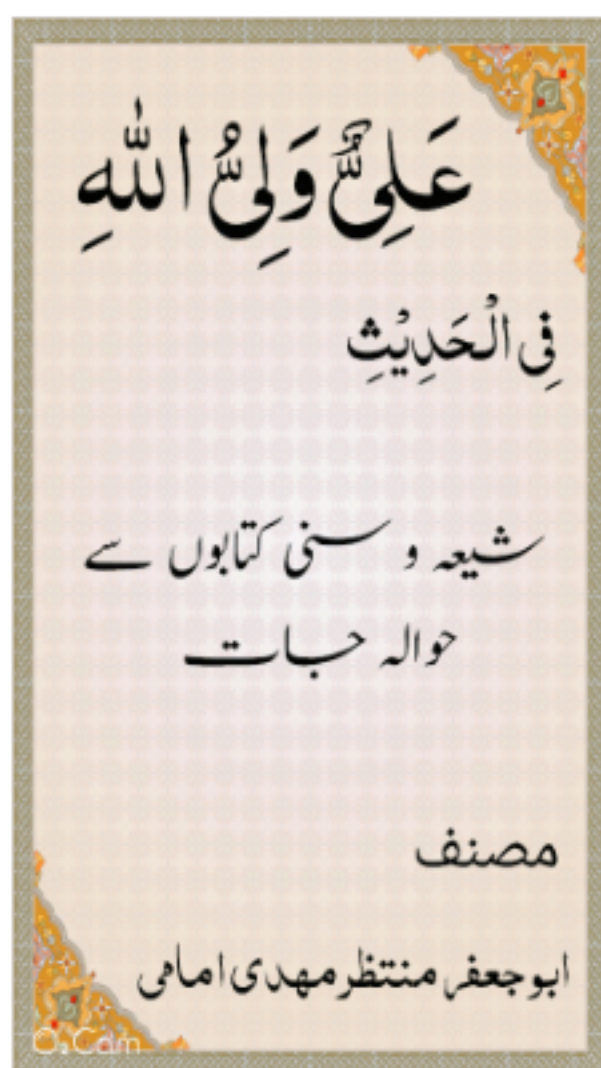 عَلِیٌّ وَلِیُّ اللّٰهِ
فِی الْحَدِیْثِ
شیعہ و سنی کتابوں سے
حوالہ جات
مصنف
ابو جعفر منتظر مهدی امامی
O.Cam